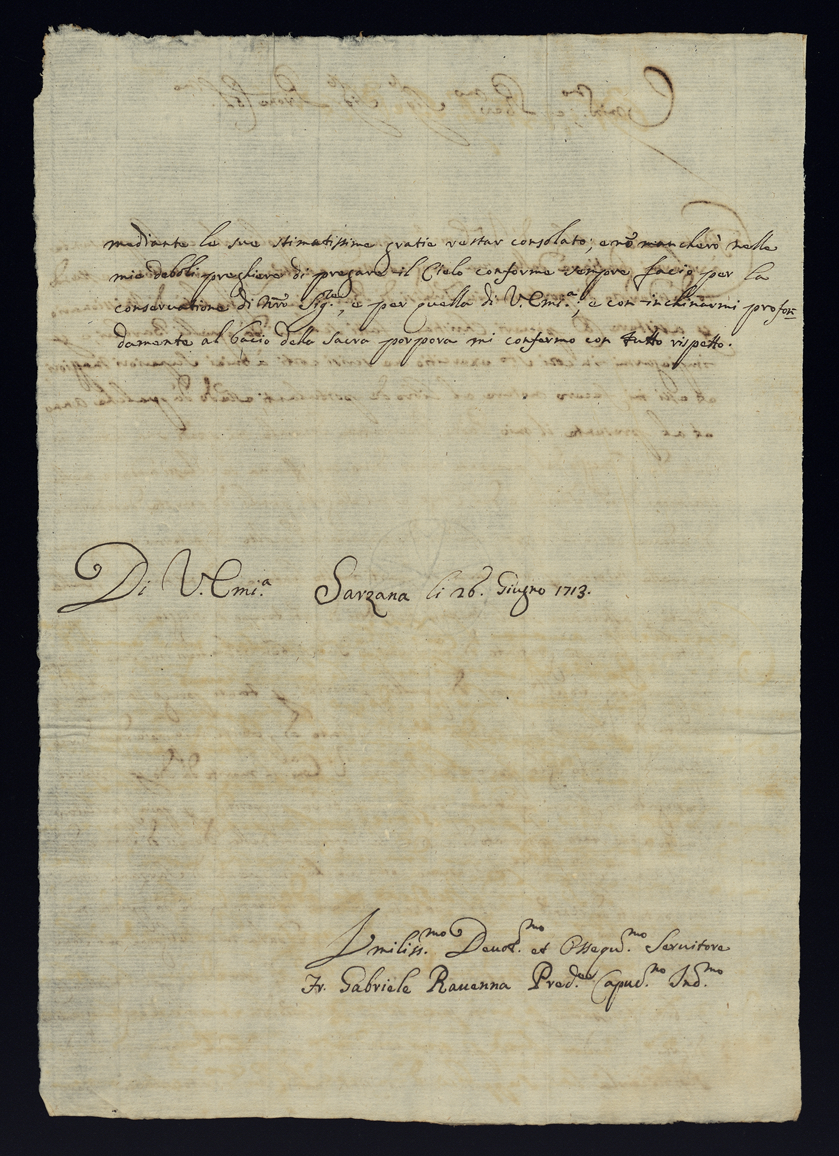 mediante le sue stimatissime gratie restar consolato; e nõ mancherò nelle
mie debboli preghiere di pregare il Cielo conforme sempre facio per la
conservatione di Nrõ Sig.re, e per quella di V. Emi.a; e con inchinarmi profon=
damente al bacio della Sacra porpora mi confermo con tutto rispetto.
Di V. Emi.a Sarzana li 26. Giugno 1713.
Vmiliss.mo Deuot.mo et Ossequ.mo Seruitore
Fr. Gabriele Rauenna Pred.re Capuc.no Ind.mo